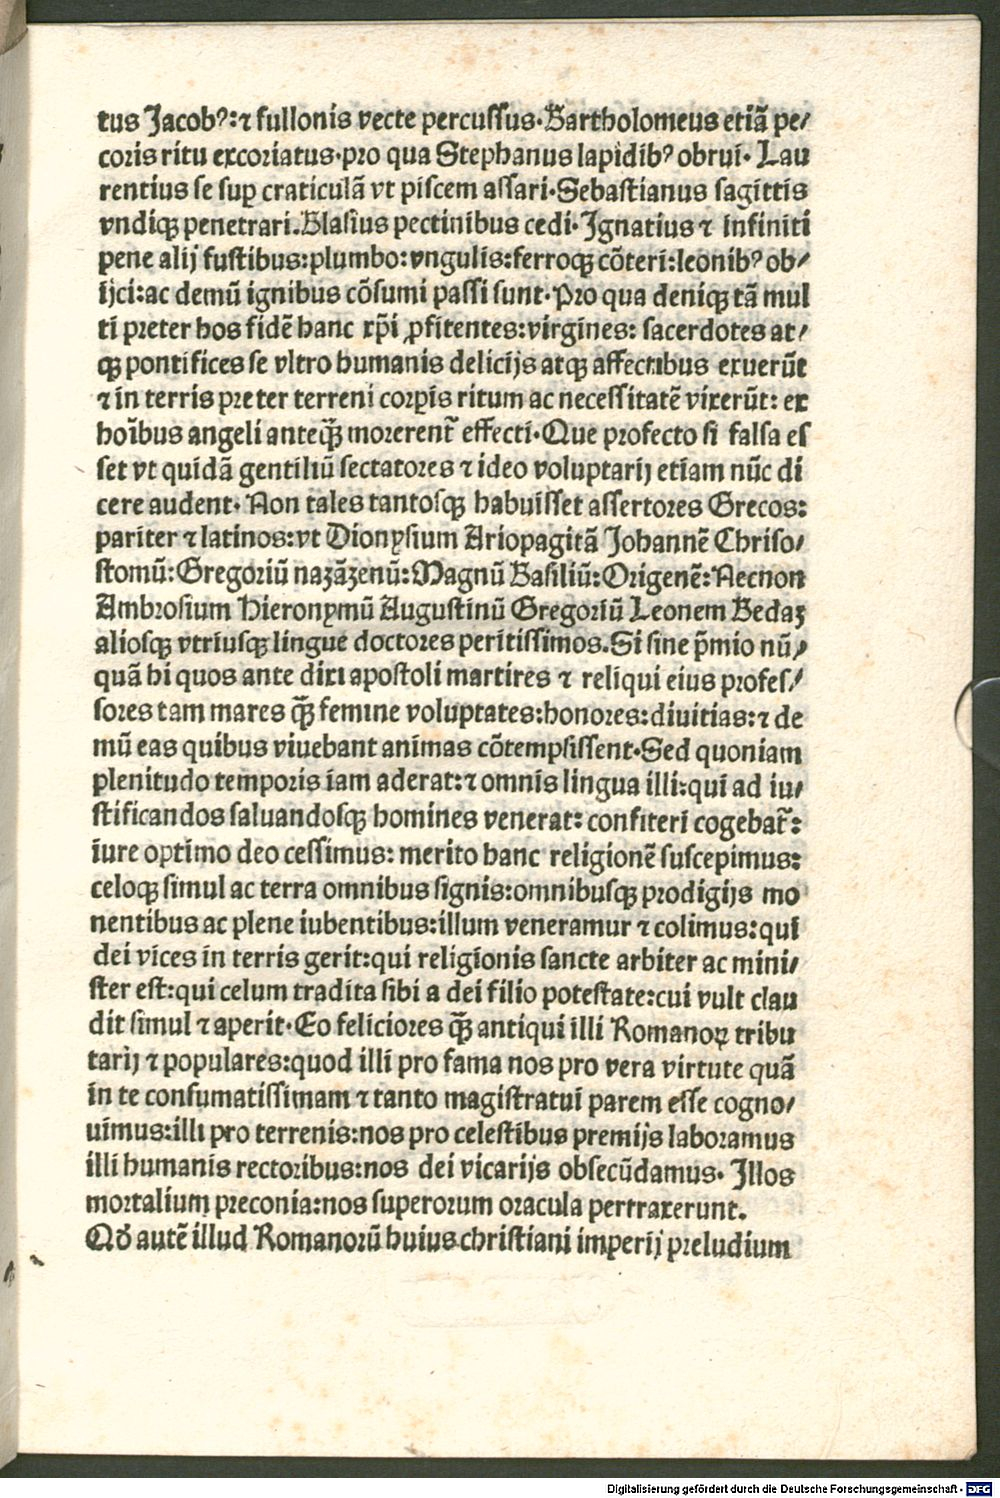 tus Jacobꝰ:⁊ fullonis vecte percussus·Bartholomeus etiā pe/
coris ritu excoriatus·pro qua Stephanus lapidibꝰ obrui· Lau
rentius se suꝑ craticulā vt piscem assari·Sebastianus sagittis
vndiqꝫ penetrari.Blasius pectinibus cedi·Ignatius ⁊ infiniti
pene alij fustibus:plumbo:vngulis:ferroqꝫ cōteri:leonibꝰ ob/
ijci:ac demū ignibus cōsumi passi sunt·Pro qua deniqꝫ tā mul
ti preter hos fidē hanc xp̄i ꝓfitentes:virgines: sacerdotes at/
qꝫ pontifices se vltro humanis delicijs atqꝫ affectibus exuerūt
⁊ in terris preter terreni corpis ritum ac necessitatē vixerūt: ex
hoībus angeli anteq̄ꝫ morerent̄ effecti·Que profecto si falsa es
set vt quidā gentiliū sectatores ⁊ ideo voluptarij etiam nūc di
cere audent· Non tales tantosqꝫ habuisset assertores Grecos:
pariter ⁊ latinos:vt Dionysium Ariopagitā Johannē Chriso/
stomū:Gregoriū nazāzenū:Magnū Basiliū:Origenē:Necnon
Ambrosium Hieronymū Augustinū Gregoriū Leonem Bedaꝫ
aliosqꝫ vtriusqꝫ lingue doctores peritissimos.Si sine p̄mio nū/
quā hi quos ante dixi apostoli martires ⁊ reliqui eius profes/
sores tam mares q̄ꝫ femine voluptates:honores:diuitias:⁊ de
mū eas quibus viuebant animas cōtempsissent·Sed quoniam
plenitudo temporis iam aderat:⁊ omnis lingua illi:qui ad iu/
stificandos saluandosqꝫ homines venerat: confiteri cogebat̄:
iure optimo deo cessimus: merito hanc religionē suscepimus:
celoqꝫ simul ac terra omnibus signis:omnibusqꝫ prodigijs mo
nentibus ac plene iubentibus:illum veneramur ⁊ colimus:qui
dei vices in terris gerit:qui religionis sancte arbiter ac mini/
ster est:qui celum tradita sibi a dei filio potestate:cui vult clau
dit simul ⁊ aperit·Eo feliciores q̄ꝫ antiqui illi Romanoꝝ tribu
tarij ⁊ populares:quod illi pro fama nos pro vera virtute quā
in te consumatissimam ⁊ tanto magistratui parem esse cogno/
uimus:illi pro terrenis:nos pro celestibus premijs laboramus
illi humanis rectoribus:nos dei vicarijs obsecūdamus· Illos
mortalium preconia:nos superorum oracula pertraxerunt.
Qđ autē illud Romanorū huius christiani imperij preludium
Digitalisierung gefördert durch die Deutsche Forschungsgemeinschaft · DFG